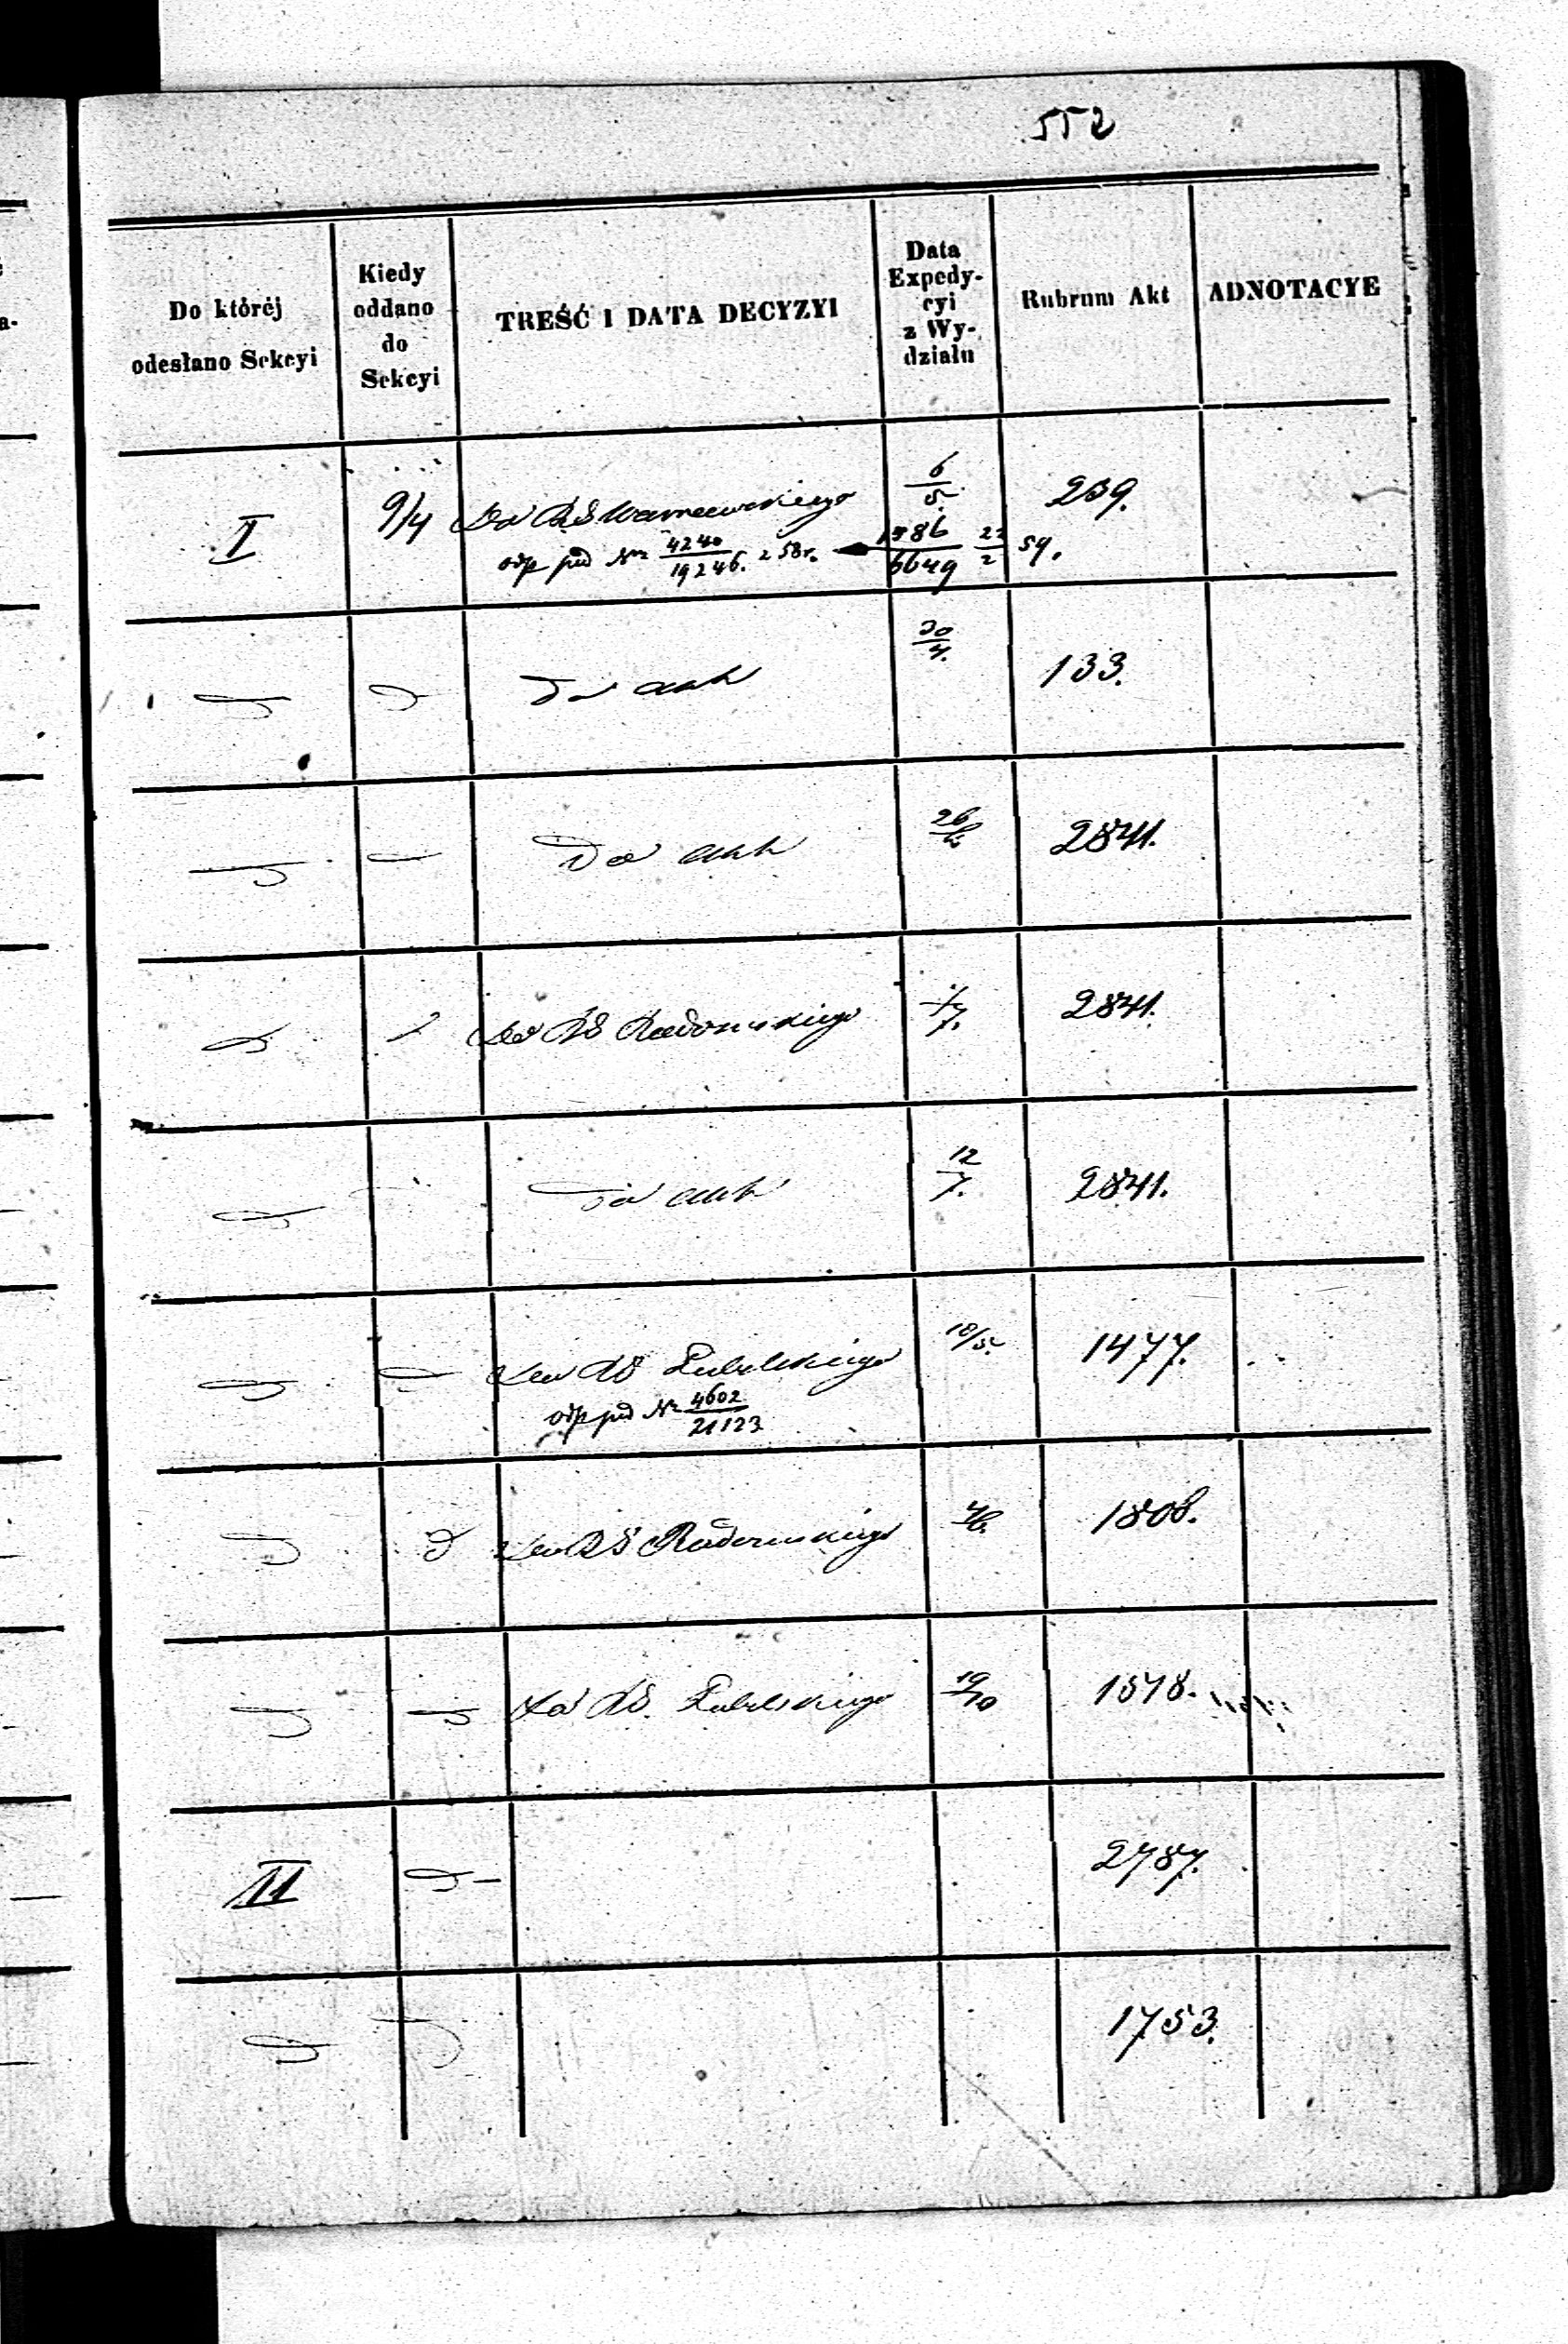 552
Do którėj
odesłano Sekcyi
Kiedy
oddano
do
Sekcyi
TREŚĆ I DATA DECYZYI
Data
Expedy-
cyi
z Wy-
działu
Rubrum Akt
ADNOTACYE
I
9/4
Do RG Warszawskiego
6/5.
239.
odp pod Nr 4240/19246. z 58 r.
1586/6649 22/2 59.
Do akt
30/4.
133.
Do akt
2841.
Do RG Radomskiego
2841.
Do akt
12/7.
2841.
Do RG Lubelskiego
18/5.
1477.
odp pod Nr 4602/21123
Do RG Radomskiego
1808.
Do RG. Lubelskiego
19/10
1578.
II
2787.
1753.